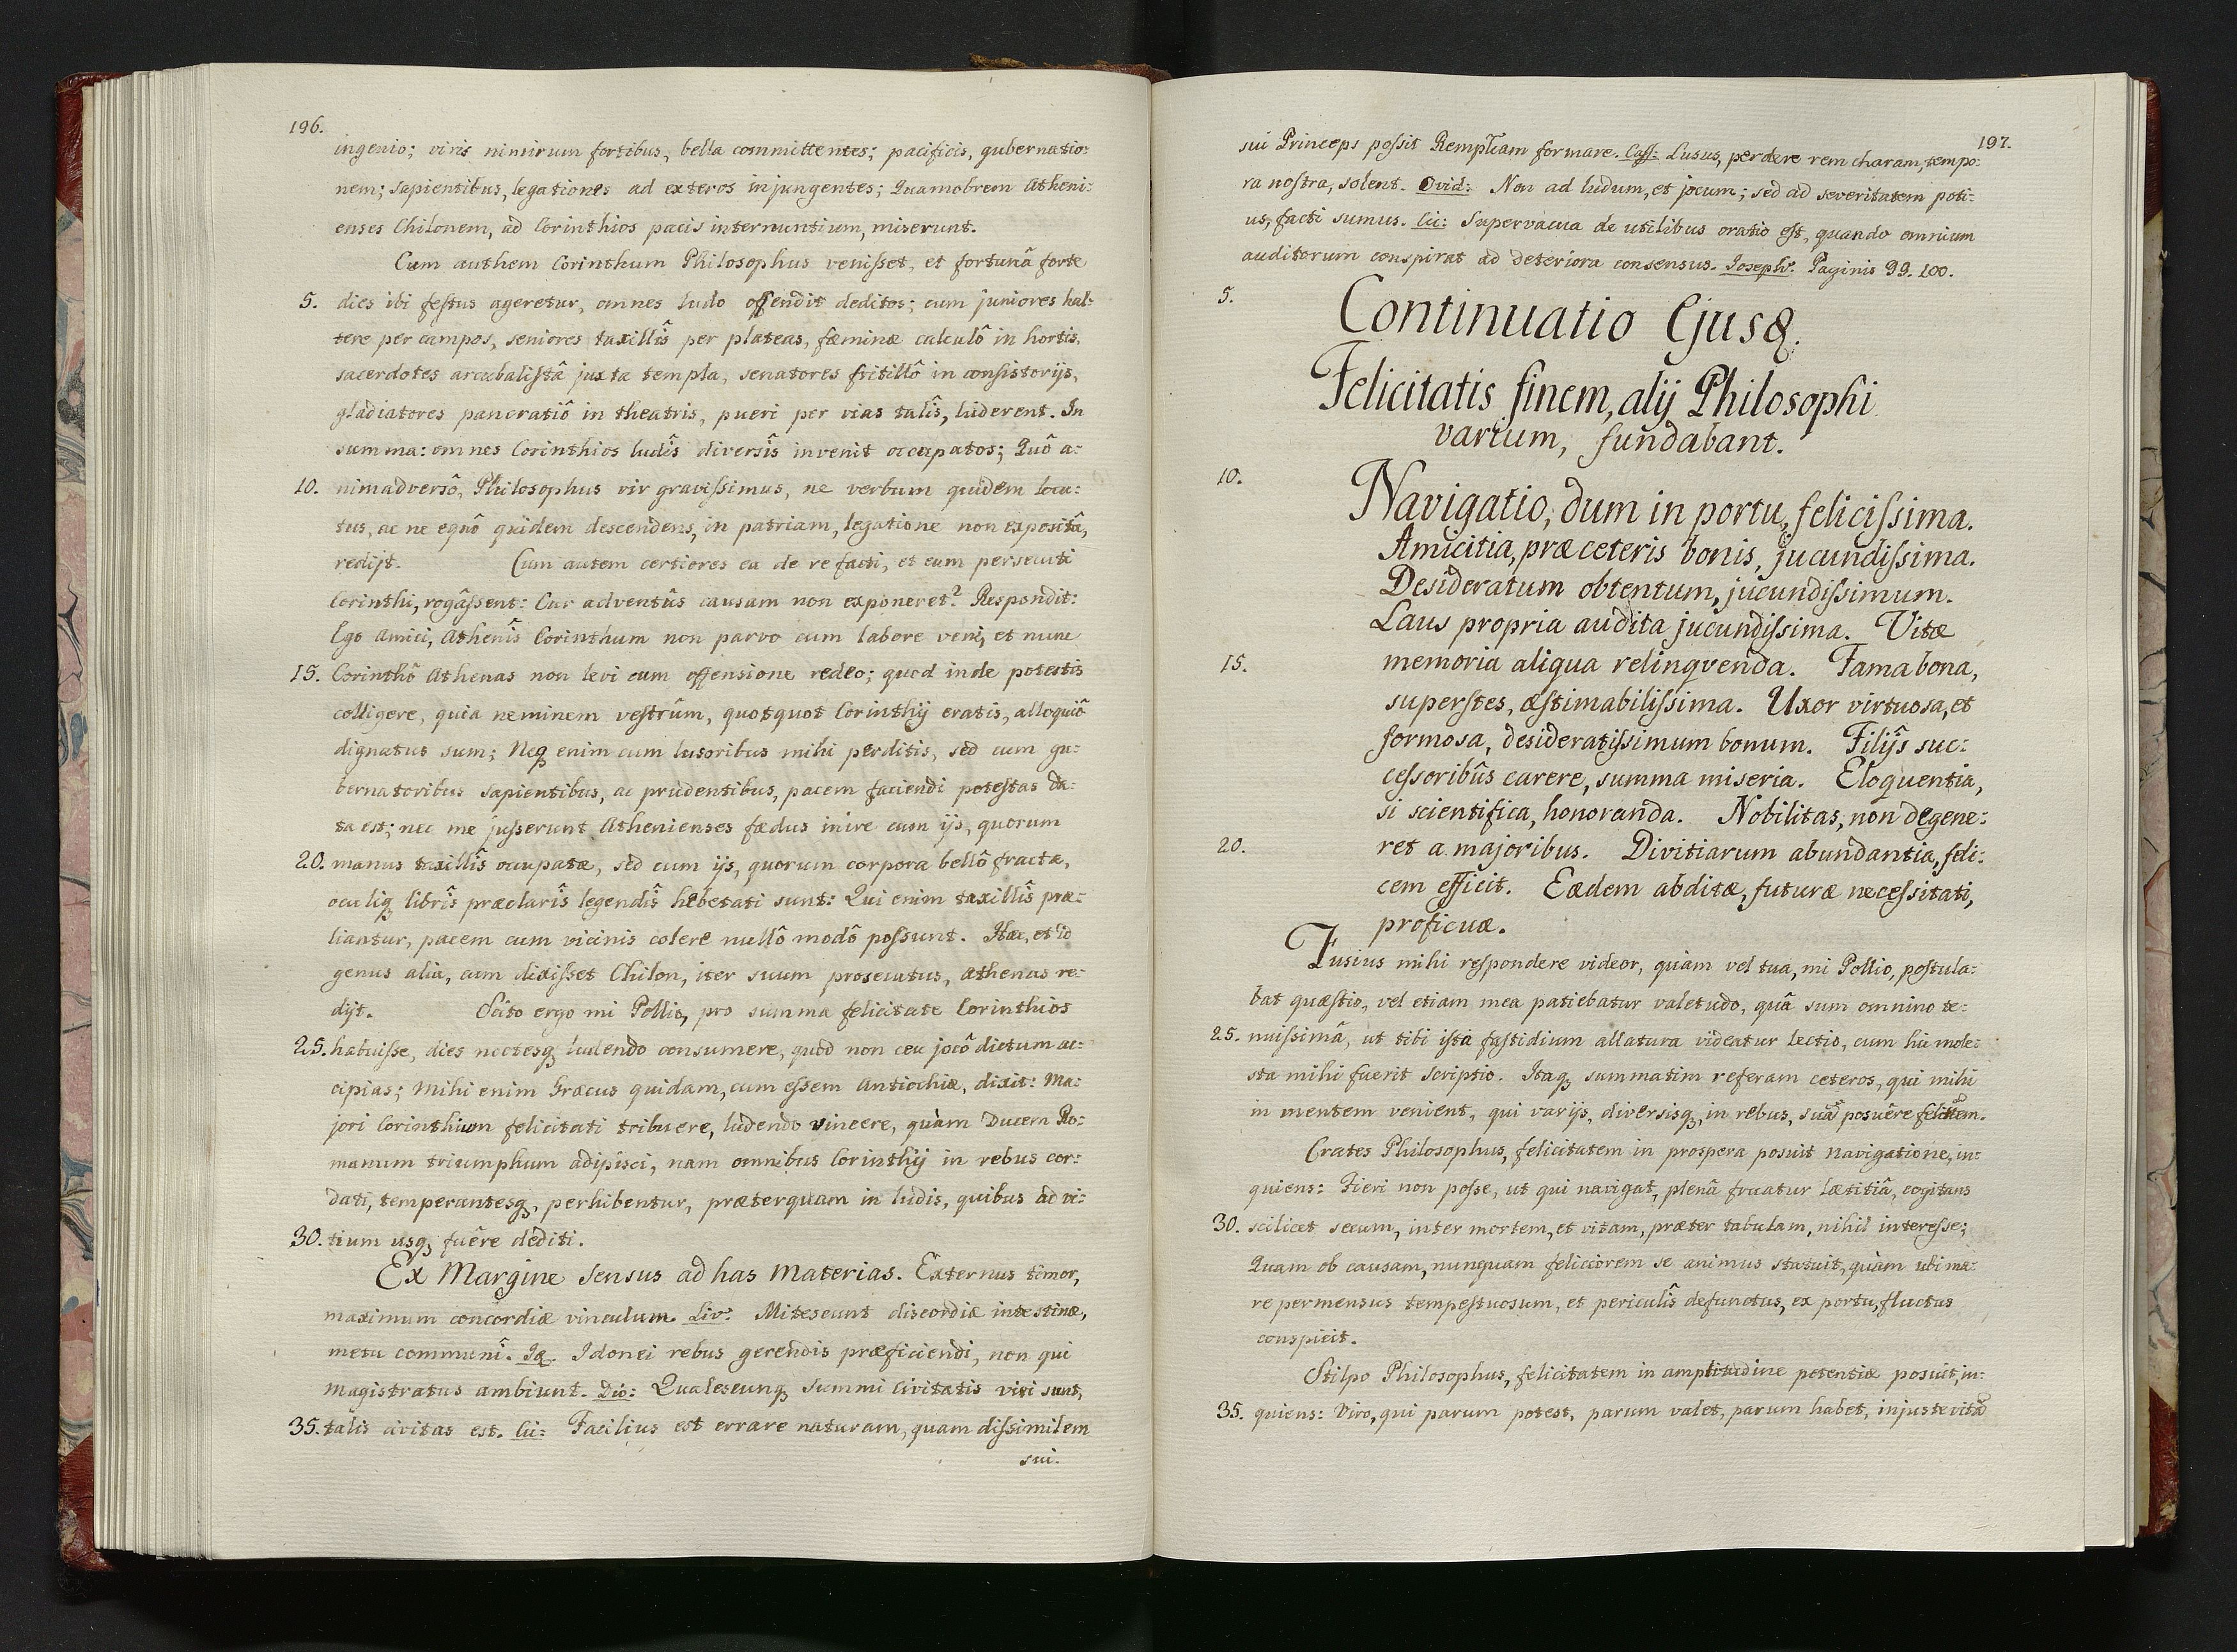 196.
ingenio; viris nimirum fortibus, bella committentes; pacificis, gubernatio:
nem; sapientibus, legationes ad exteros injungentes; Quamobrem Atheni:
enses Chilonem, ad Corinthios pacis internuntium, miserunt.
Cum authem Corinthum Philosophus venisset, et fortunâ forte
5. dies ibi festus ageretur, omnes ludo offendit deditos; cum juniores hal:
tere per campos, seniores taxillîs per plateas, fæminæ calculô in hortis,
sacerdotes arcubalistâ juxta templa, senatores fritillô in consistorijs,
gladiatores pancratiô in theatris, pueri per vias talîs, luderent. In
summa: omnes Corinthios ludîs diversîs invenit occupatos; Quô a:
10. nimadversô, Philosophus vir gravissimus, ne verbum quidem locu:
tus, ac ne equô quidem descendens, in patriam, legatione non expositâ,
redijt. Cum autem certiores ea de re facti, et eum persecuti
Corinthi, rogâssent: Cur adventûs causam non exponeret? Respondit:
Ego Amici, Athenîs Corinthum non parvo cum labore veni, et nunc
15. Corinthô Athenas non levi cum offensione redeo; quod inde potestis
colligere, quia neminem vestrûm, quotquot Corinthij eratis, alloquiô
dignatus sum; Neq; enim cum lusoribus mihi perditis, sed cum gu:
bernatoribus sapientibus, ac prudentibus, pacem faciendi potestas da:
ta est; nec me jusserunt Athenienses fœdus inire cum ijs, quorum
20. manus taxillîs occupatæ, sed cum ijs, quorum corpora bellô fracta,
oculiq; librîs præclarîs legendîs hebetati sunt: Qui enim taxillîs præ:
liantur, pacem cum vicinis colere nullô modô possunt. Hæc, et id
genus alia, cum dixisset Chilon, iter suum prosecutus, Athenas re:
dijt. Scito ergo mi Pollio, pro summa felicitate Corinthios
25. habuisse, dies noctesq; ludendo consumere, quod non ceu jocô dictum ac:
cipias; Mihi enim Græcus quidam, cum essem Antiochiæ, dixit: Ma:
jori Corinthium felicitati tribuere, ludendo vincere, quàm Ducem Ro:
manum triumphum adipisci, nam omnibus Corinthij in rebus cor:
dati, temperantesq; perhibentur, præterquam in ludis, quibus ad vi:
30. tium usq; fuêre dediti.
Ex Margine Sensus ad has Materias. Externus timor,
maximum concordiæ vinculum. Liv: Mitescunt discordiæ intestinæ,
metu communî. Iq. Idonei rebus gerendis præficiendi, non qui
Magistratus ambiunt. Dio: Qualescunq; summi Civitatis viri sunt,
35. talis civitas est. Cic: Facilius est errare naturam, quam dissimilem
sui.
197.
sui Princeps possit Rempltcam formare. Cass: Lusus, perdere rem charam, tempo:
ra nostra, solent. Ovid: Non ad ludum, et jocum; sed ad severitatem poti:
us, facti sumus. Cic: Supervacua de utilibus oratio est, quando omnium
auditorum conspirat ad deteriora consensus. Joseph: Paginis 99. 100.
5. Continuatio Ejusq;
Felicitatis finem, alij Philosophi
varium, fundabant.
10. Navigatio, dum in portu, felicissima.
Amicitia, præ ceteris bonis, jucundissima.
Desideratum obtentum, jucundissimum.
Laus propria audita jucundissima. Vitæ
15. memoria aliqua relinqvenda. Fama bona,
superstes, æstimabilissima. Uxor virtuosa, et
formosa, desideratissimum bonum. Filijs suc:
cessoribûs carere, summa miseria. Eloquentia,
si scientifica, honoranda. Nobilitas, non degene:
20. ret a majoribus. Divitiarum abundantia, feli:
cem efficit. Eædem abditæ, futuræ necessitati,
proficuæ.
Fusius mihi respondere videor, quàm vel tua, mi Pollio, postula:
bat quæstio, vel etiam mea patiebatur valetudo, quâ sum omnino te:
25. nuissimâ, ut tibi ista fastidium allatura videatur lectio, cum hæc mole:
sta mihi fuerit scriptio. Itaq; summatim referam ceteros, qui mihi
in mentem venient, qui varijs, diversisq; in rebus, suã posuêre felicttem.
Crates Philosophus, felicitatem in prospera posuit navigatione, in:
quiens: Fieri non posse, ut qui navigat, plenâ fruatur lætitiâ, cogitans
30. scilicet secum, inter mortem, et vitam, præter tabulam, nihil interesse;
Quam ob causam, nunquam feliciorem se animus statuit, quàm ubi ma:
re permensus tempestuosum, et periculîs defunctus, ex portu, fluctus
conspicit.
Stilpo Philosophus, felicitatem in amplitudine potentiæ posuit, in:
35. quiens: Viro, qui parum potest, parum valet, parum habet, injuste vitã